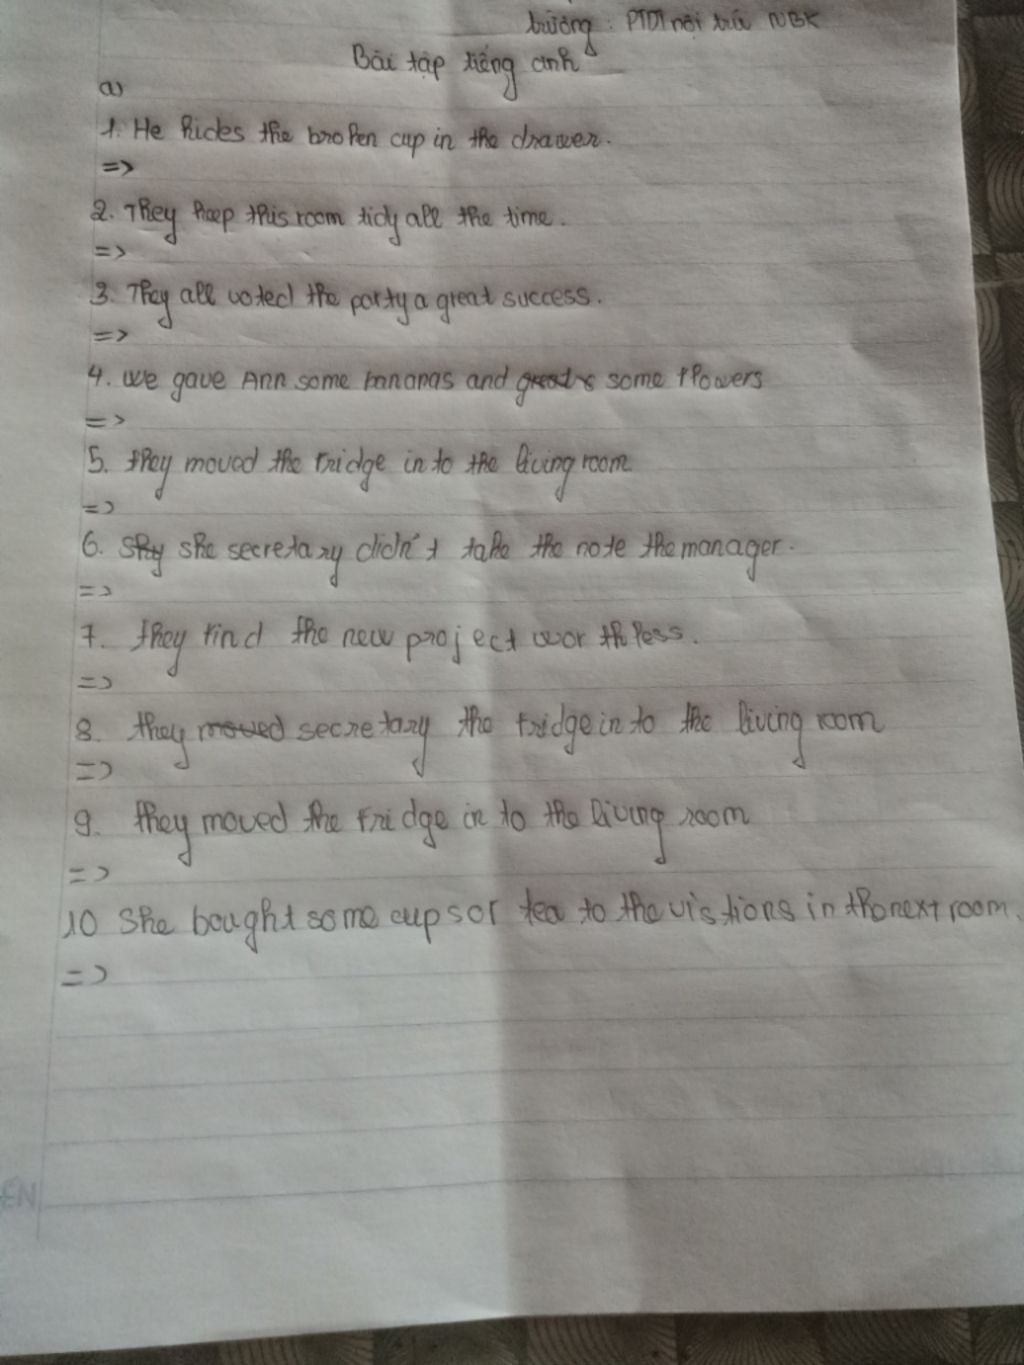 trường: PTDT nội trú NBK
Bài tập tiếng anh
a)
1. He hides the broken cup in the drawer.
=>
2. They keep this room tidy all the time.
=>
3. They all voted the party a great success.
=>
4. We gave Ann some bananas and some flowers
=>
5. they moved the fridge in to the living room
=>
6. she secretary didn't take the note the manager.
=>
7. they find the new project worthless.
=>
8. they secretary the fridge in to the living room
=>
9. they moved the fridge in to the living room
=>
10 She bought some cups of tea to the vistions in the next room.
=>